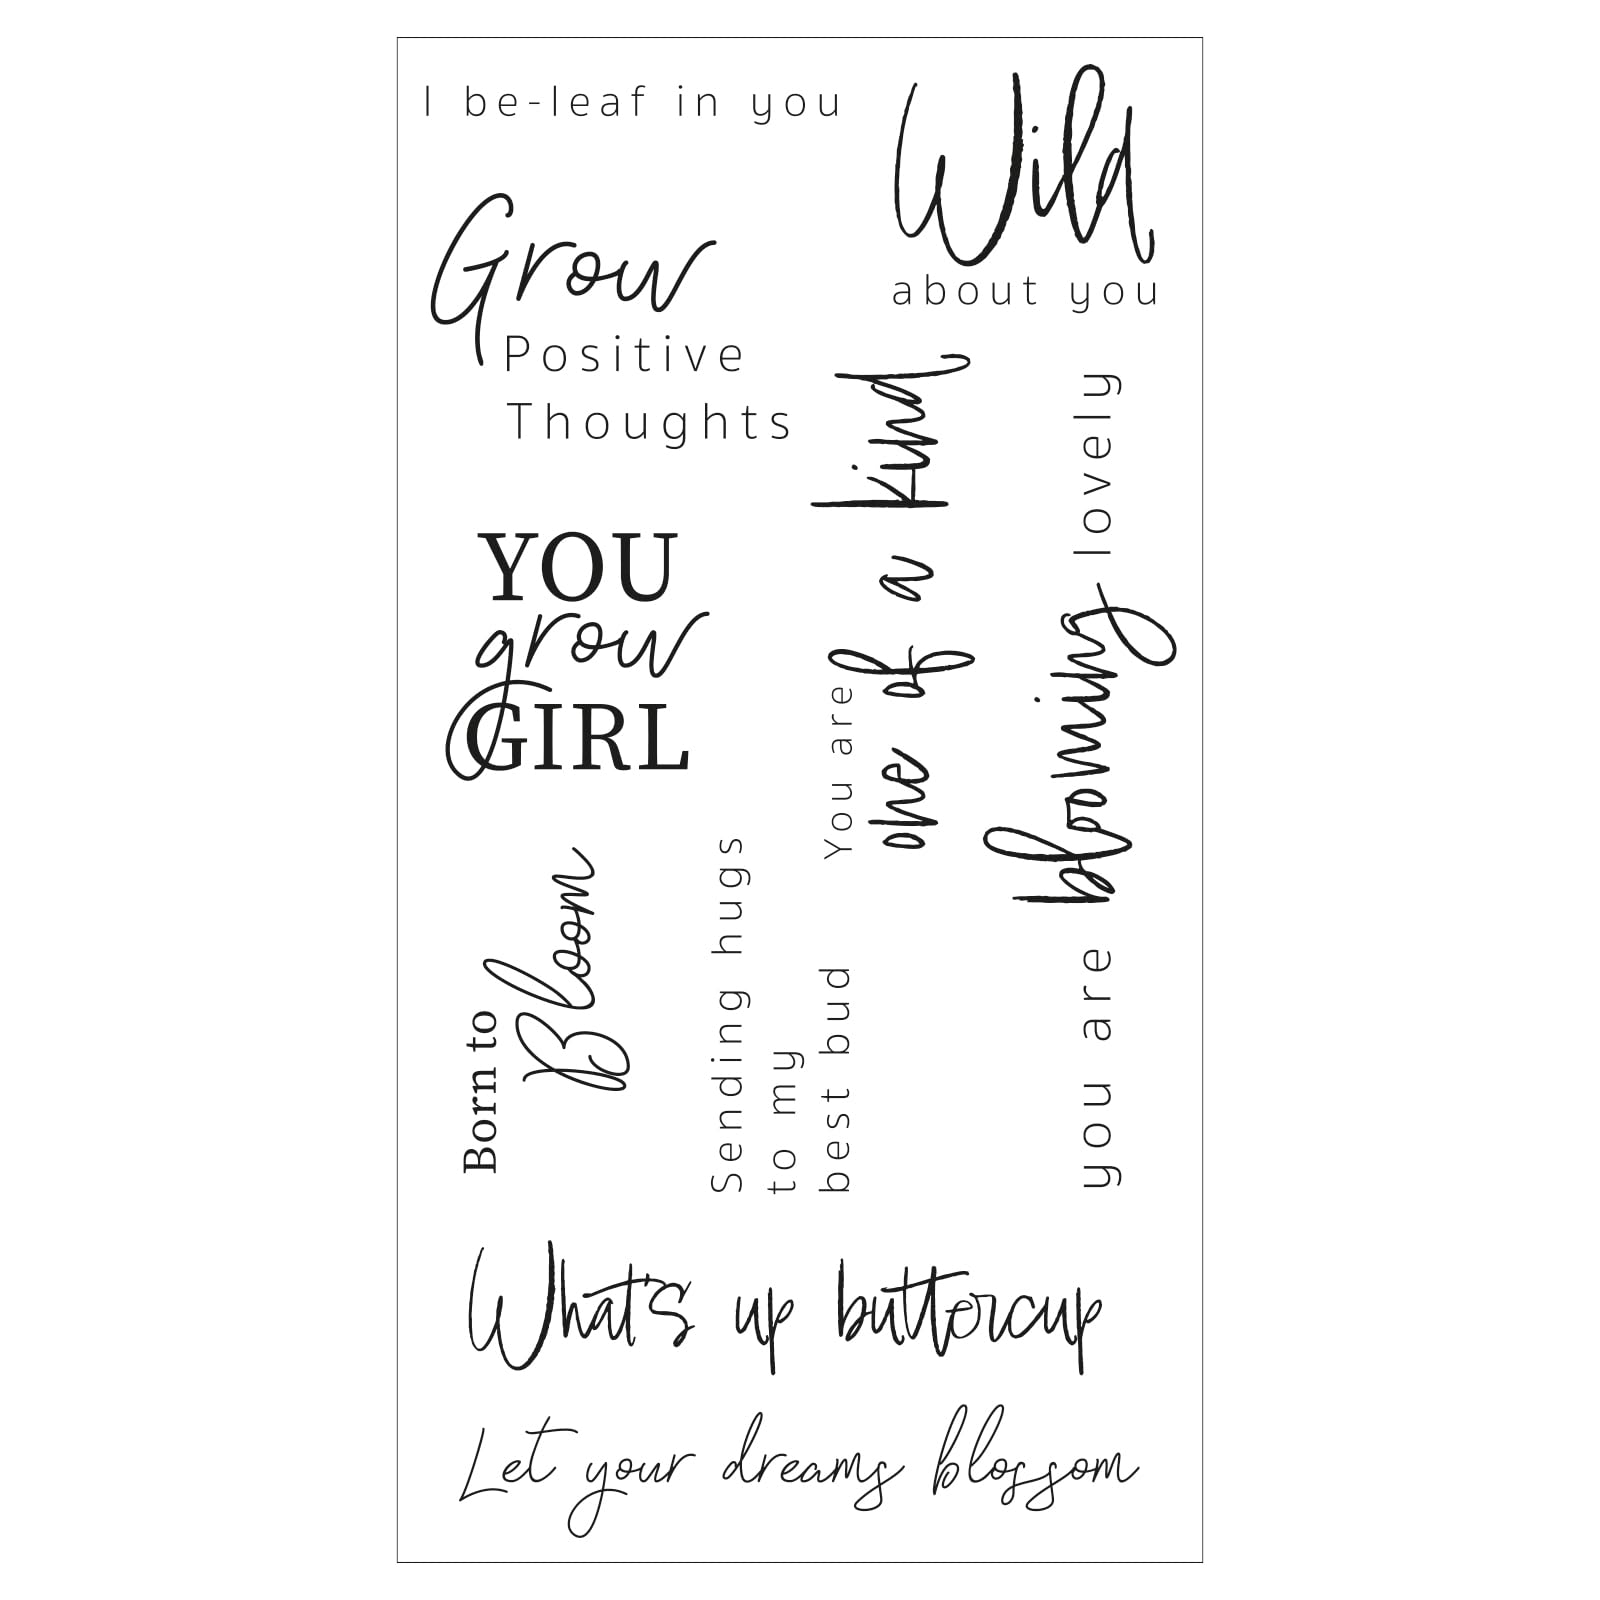 I be-leaf in you
Wild
about you
Grow
Positive
Thoughts
YOU
grow
GIRL
You are
one of a kind
you are blooming lovely
Born to
Bloom
Sending hugs
to my
best bud
What's up buttercup
Let your dreams blossom